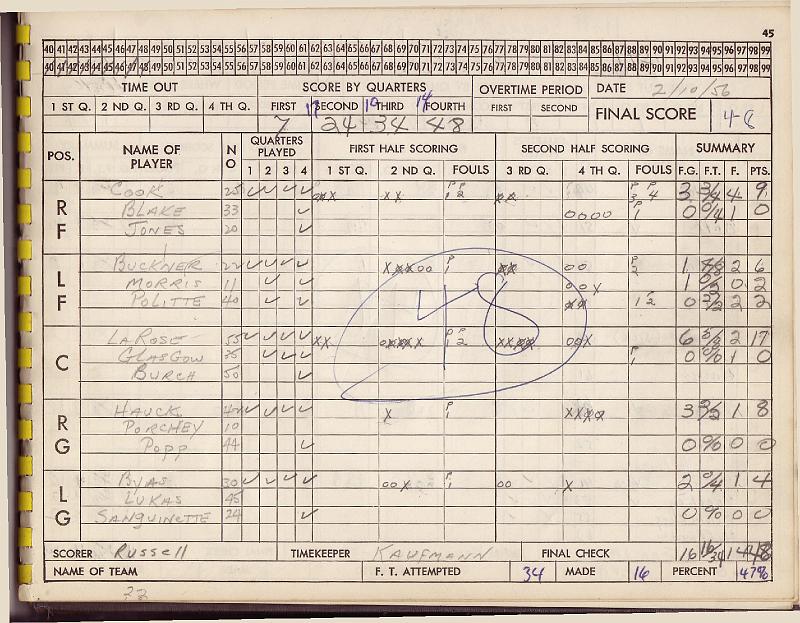 45
40 41 42 43 44 45 46 47 48 49 50 51 52 53 54 55 56 57 58 59 60 61 62 63 64 65 66 67 68 69 70 71 72 73 74 75 76 77 78 79 80 81 82 83 84 85 86 87 88 89 90 91 92 93 94 95 96 97 98 99
40 41 42 43 44 45 46 47 48 49 50 51 52 53 54 55 56 57 58 59 60 61 62 63 64 65 66 67 68 69 70 71 72 73 74 75 76 77 78 79 80 81 82 83 84 85 86 87 88 89 90 91 92 93 94 95 96 97 98 99
TIME OUT SCORE BY QUARTERS OVERTIME PERIOD DATE 2/10/56
1 ST Q. 2 ND Q. 3 RD Q. 4 TH Q. FIRST 17 SECOND 10 THIRD 14 FOURTH FIRST SECOND FINAL SCORE 48
7 24 34 48
POS. NAME OF PLAYER NO QUARTERS PLAYED FIRST HALF SCORING SECOND HALF SCORING SUMMARY
1 2 3 4 1 ST Q. 2 ND Q. FOULS 3 RD Q. 4 TH Q. FOULS F.G. F.T. F. PTS.
RF COOK 25 3 3/4 4 9
BLAKE 33 0 0/4 1 0
JONES 20
LF BUCKNER 22 1 4/8 2 6
MORRIS 11 1 0/2 0 2
POLITTE 40 0 2/2 2 2
48
C LAROSE 55 6 5/2 17
GLASGOW 35 0 1 0
BURCH 50
RG HAUCK 3 2/2 1 8
PORCHEY 10
POPP 44 0 0/0 0 0
LG BYAS 30 2 0/4 1 4
LUKAS 45
SANGUINETTE 24 0 0/0 0 0
SCORER Russell TIMEKEEPER KAUFMANN FINAL CHECK 16 16/34 14 48
NAME OF TEAM F. T. ATTEMPTED 34 MADE 16 PERCENT 47%